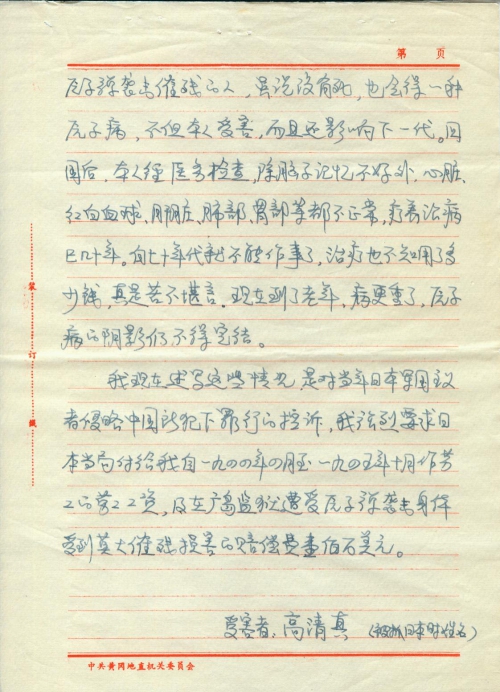 第 页
原子弹袭击催残的人，虽说没有死，也会得一种
原子病，不但本人受害，而且还影响下一代。回
国后，本人经医务检查，除脑子记忆不好外，心脏、
红白血球、肝脏、肺部、胃部等都不正常，疗养治病
已几十年。自七十年代就不能作事了，治疗也不知用了多
少钱，真是苦不堪言。现在到了老年，病更重了，原子
病的阴影仍不得完结。
我现在述写这些情况，是对当年日本军国主义
者侵略中国所犯下罪行的控诉，我强烈要求日
本当局付给我自一九四四年四月至一九四五年十月作劳
工的劳工工资，及在广岛监狱遭受原子弹袭击身体
受到莫大催残损害的赔偿费壹佰万美元。
受害者：高清真（被抓日本时姓名）
装 订 线
中共黄冈地直机关委员会